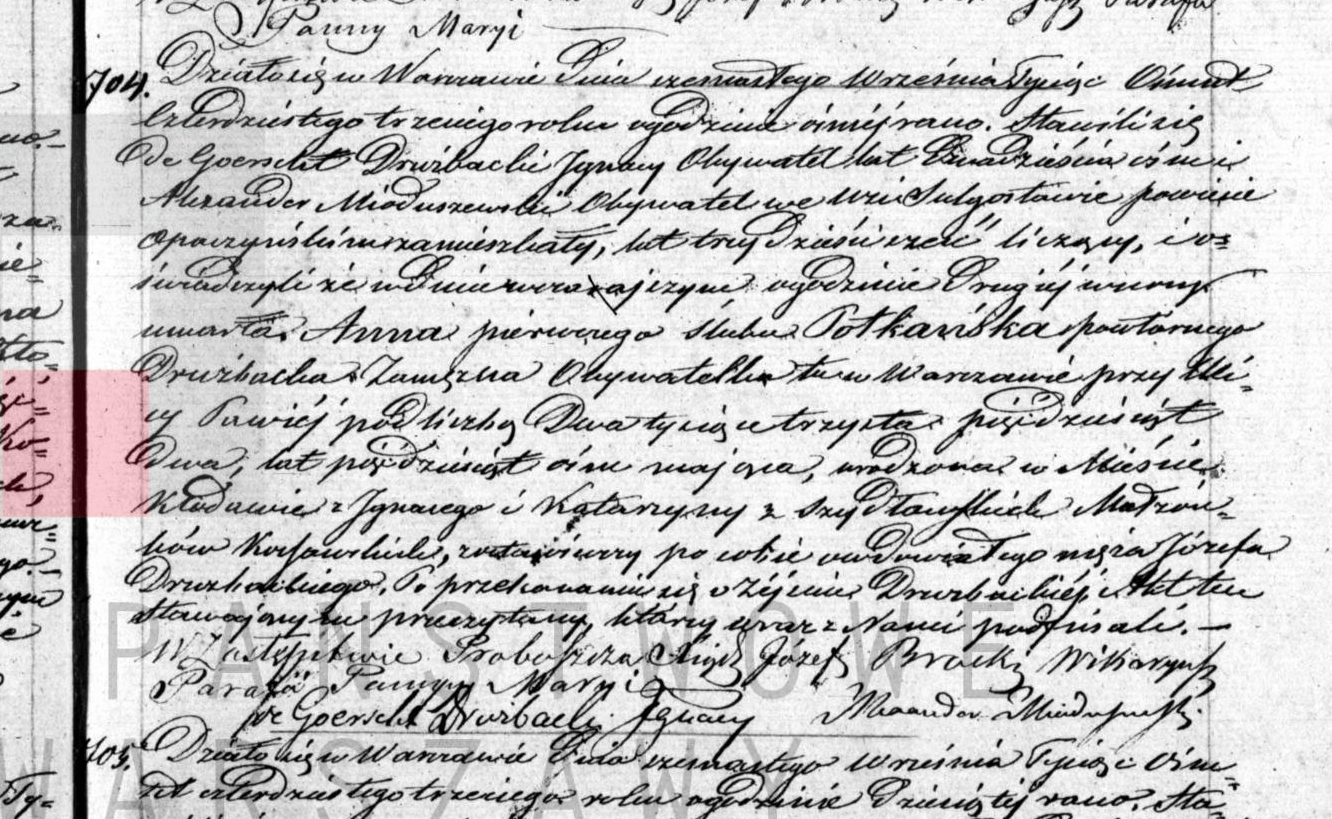 Panny Maryi
704. Działo się w Warszawie Dnia szesnastego Września Tysiąc Ośmset
Czterdziestego trzeciego roku o godzinie ósméj rano. Stawili się
de Goersckt Drużbacki Ignacy Obywatel lat Dwadzieścia ośm i
Alexander Mioduszewski Obywatel we Wsi Sulgostowie powiecie
Opoczyńskim zamieszkały, lat trzydzieści sześć liczący, i o=
świadczyli że w Dniu wczorajszym o godzinie Drugiéj w nocy
umarła Anna pierwszego ślubu Potkańska powtórnego
Drużbacka Zamężna Obywatelka tu w Warszawie przy Uli=
cy Pawiéj pod liczbą Dwa tysiące trzysta pięćdziesiąt
Dwa, lat pięćdziesiąt ośm mająca, urodzona w Mieście
Kłodawie z Ignacego i Katarzyny z Szydłowskich Małżon=
ków Kossowskich, zostawiwszy po sobie owdowiałego męża Józefa
Drużbackiego. Po przekonaniu się o Zejściu Drużbackiéj, Akt ten
Stawającym przeczytany, którzy wraz z Nami podpisali. —
W Zastępstwie Proboszcza Xiądz Józef Brocki Wikaryusz
Parafii Panny Maryi
de Goersckt Drużbacki Ignacy Alexander Mioduszewski
705. Działo się w Warszawie Dnia szesnastego Września Tysiąc Ośm=
set czterdziestego trzeciego roku o godzinie Dziesiątéj rano. Sta=
PAŃSTWOWE
WARSZAWY